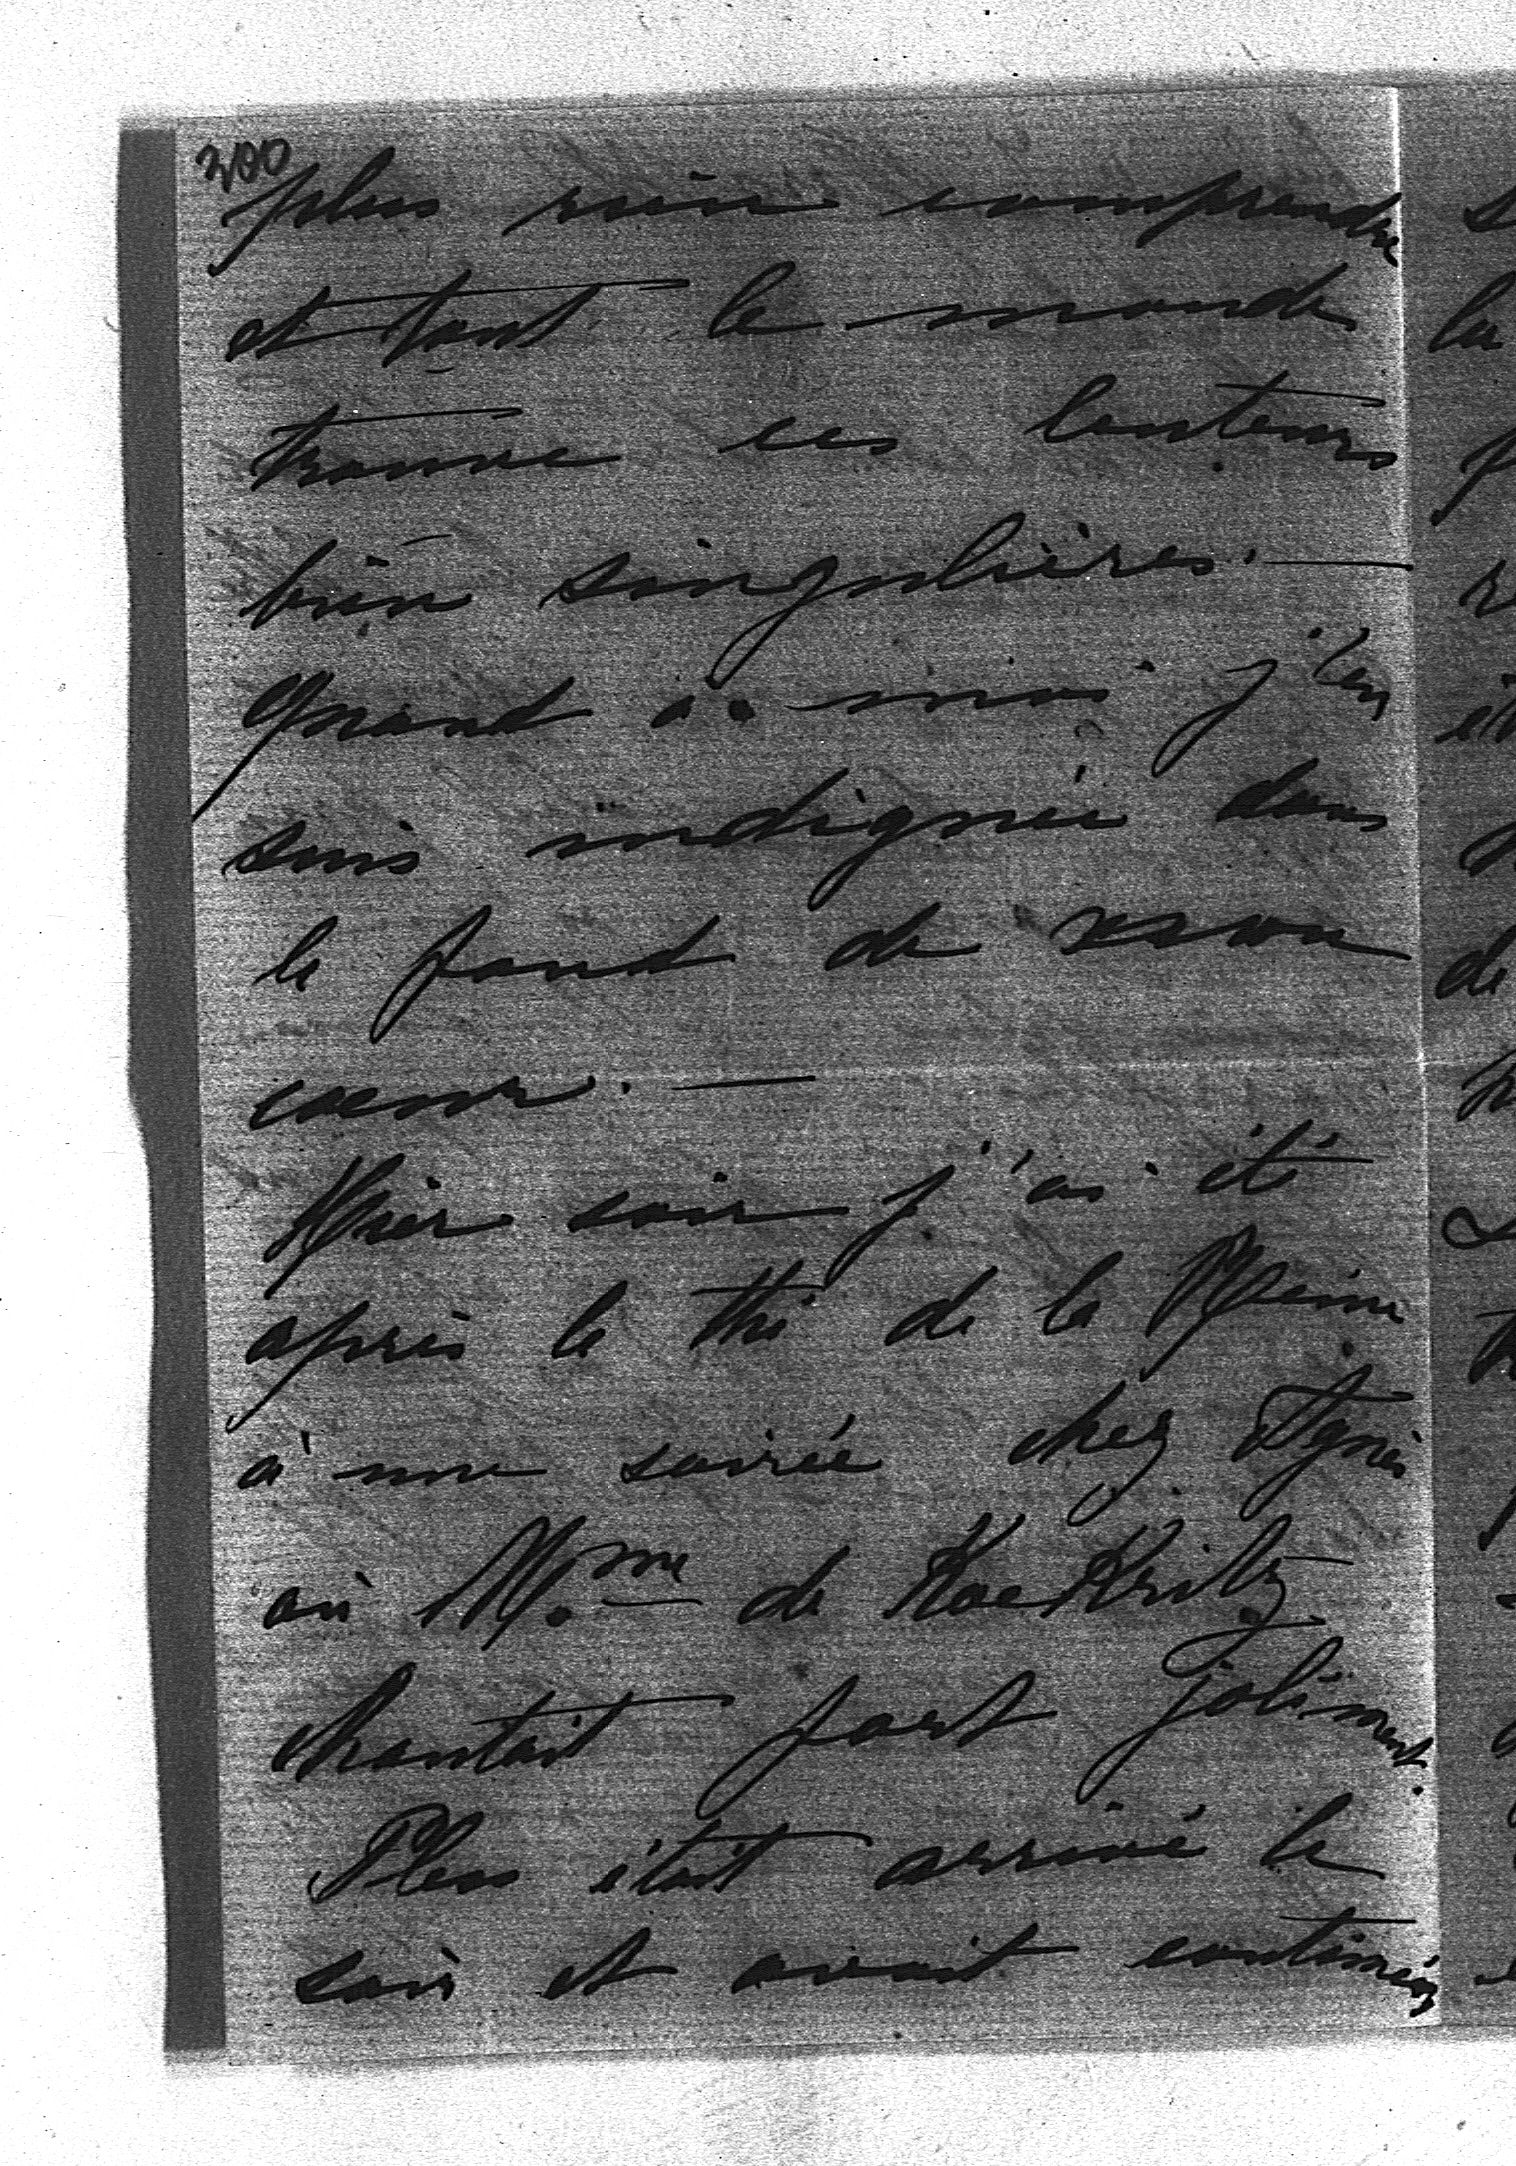 200
plus rien comprendre
et tout le monde
trouve ces lenteurs
bien singulières. —
Quant à moi j'en
suis indignée dans
le fond de mon
coeur. —
Hier soir j'ai été
après le thé de la Reine
à une soirée chez Agnès
où Mme de Koekritz
chantait fort joliment.
Pless était arrivé le
soir et avait